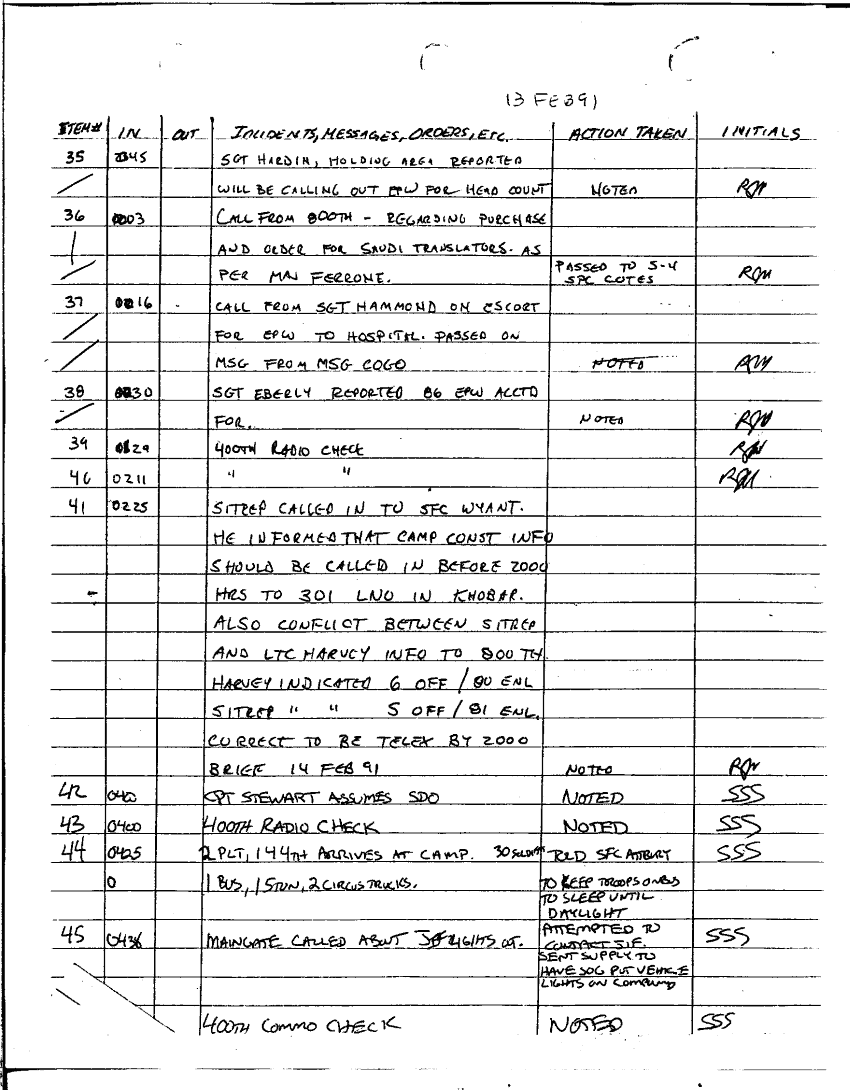 13 FEB 91
ITEM# IN OUT INCIDENTS, MESSAGES, ORDERS, ETC. ACTION TAKEN INITIALS
35 SGT HARDIN, HOLDING AREA REPORTED
WILL BE CALLING OUT EPW FOR HEAD COUNT NOTED
36 0003 CALL FROM 800TH - REGARDING PURCHASE
AND ORDER FOR SAUDI TRANSLATORS. AS
PER MAJ FERRONE. PASSED TO S-4 SPC COTES
37 0016 CALL FROM SGT HAMMOND ON ESCORT
FOR EPW TO HOSPITAL. PASSED ON
MSG FROM MSG COGO NOTED
38 0030 SGT EBERLY REPORTED 86 EPW ACCTD
FOR. NOTED
39 0129 400TH RADIO CHECK
40 0211 " "
41 0225 SITREP CALLED IN TO SFC WYANT.
HE INFORMED THAT CAMP CONST INFO
SHOULD BE CALLED IN BEFORE 2000
HRS TO 301 LNO IN KHOBAR.
ALSO CONFLICT BETWEEN SITREP
AND LTC HARVEY INFO TO 800TH.
HARVEY INDICATED 6 OFF / 80 ENL
SITREP " " 5 OFF / 81 ENL.
CORRECT TO BE TELEX BY 2000
BRIEF 14 FEB 91 NOTED
42 CPT STEWART ASSUMES SDO NOTED SSS
43 0400 400TH RADIO CHECK NOTED SSS
44 0425 2 PLT, 144TH ARRIVES AT CAMP. 30 SOLDIERS TOLD SFC ATTBURY SSS
0 1 BUS, 1 5TON, 2 CIRCUS TRUCKS. TO KEEP TROOPS ON BUS
TO SLEEP UNTIL
DAYLIGHT
45 0438 MAINGATE CALLED ABOUT LIGHTS OUT. ATTEMPTED TO SSS
CONTACT
SENT SUPPLY TO
HAVE SOG PUT VEHICLE
LIGHTS ON COMPOUND
400TH COMMO CHECK NOTED SSS